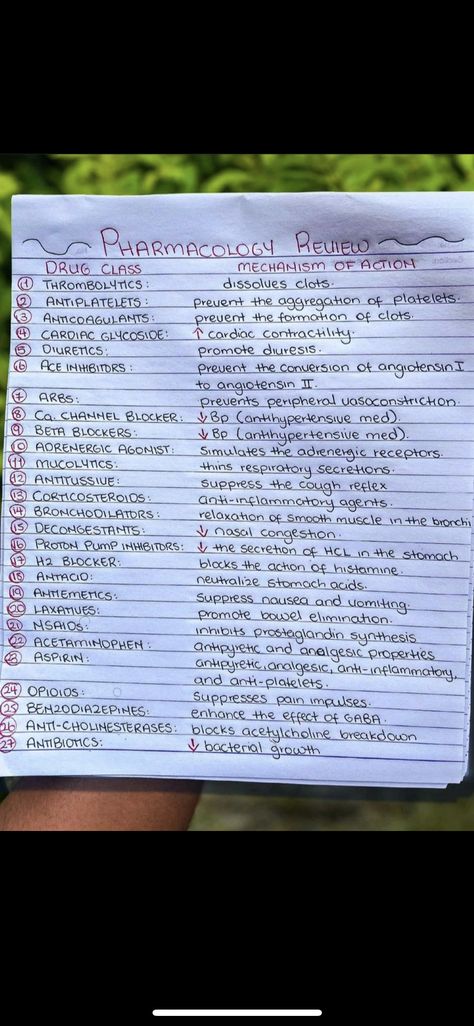 PHARMACOLOGY REVIEW
DRUG CLASS MECHANISM OF ACTION
1 THROMBOLYTICS: dissolves clots.
2 ANTIPLATELETS: prevent the aggregation of platelets.
3 ANTICOAGULANTS: prevent the formation of clots.
4 CARDIAC GLYCOSIDE: ↑ cardiac contractility.
5 DIURETICS: promote diuresis.
6 ACE INHIBITORS: prevent the conversion of angiotensin I
to angiotensin II.
7 ARBS: prevents peripheral vasoconstriction.
8 Ca. CHANNEL BLOCKER: ↓ Bp (antihypertensive med).
9 BETA BLOCKERS: ↓ Bp (antihypertensive med).
10 ADRENERGIC AGONIST: simulates the adrenergic receptors.
11 MUCOLYTICS: thins respiratory secretions.
12 ANTITUSSIVE: suppress the cough reflex
13 CORTICOSTEROIDS: anti-inflammatory agents.
14 BRONCHODILATORS: relaxation of smooth muscle in the bronchi
15 DECONGESTANTS: ↓ nasal congestion.
16 PROTON PUMP INHIBITORS: ↓ the secretion of HCL in the stomach
17 H2 BLOCKER: blocks the action of histamine.
18 ANTACID: neutralize stomach acids.
19 ANTIEMETICS: suppress nausea and vomiting.
20 LAXATIVES: promote bowel elimination.
21 NSAIDS: inhibits prostaglandin synthesis
22 ACETAMINOPHEN: antipyretic and analgesic properties
23 ASPIRIN: antipyretic, analgesic, anti-inflammatory,
and anti-platelets.
24 OPIOIDS: suppresses pain impulses.
25 BENZODIAZEPINES: enhance the effect of GABA.
26 ANTI-CHOLINESTERASES: blocks acetylcholine breakdown
27 ANTIBIOTICS: ↓ bacterial growth